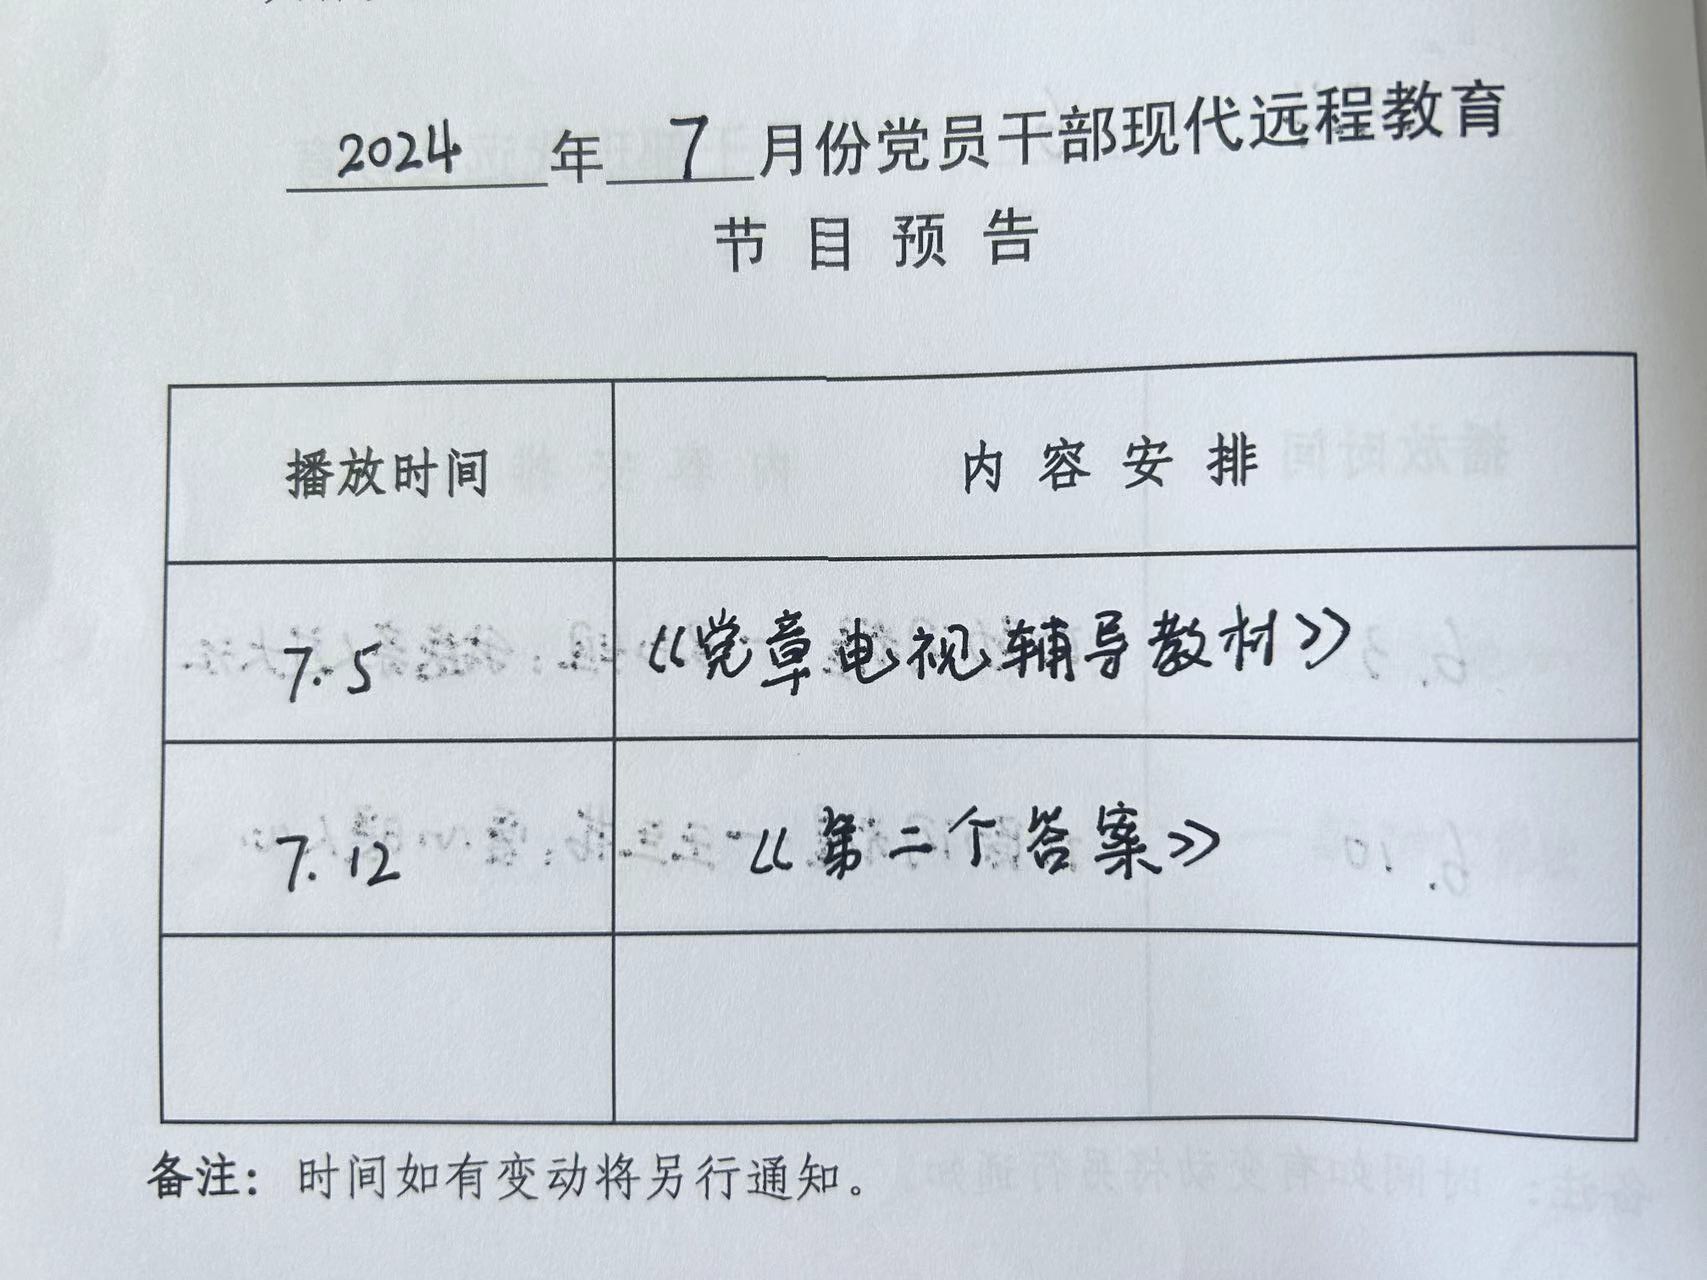 2024年7月份党员干部现代远程教育
节目预告
播放时间 内容安排
7.5 《党章电视辅导教材》
7.12 《第二个答案》
备注：时间如有变动将另行通知。